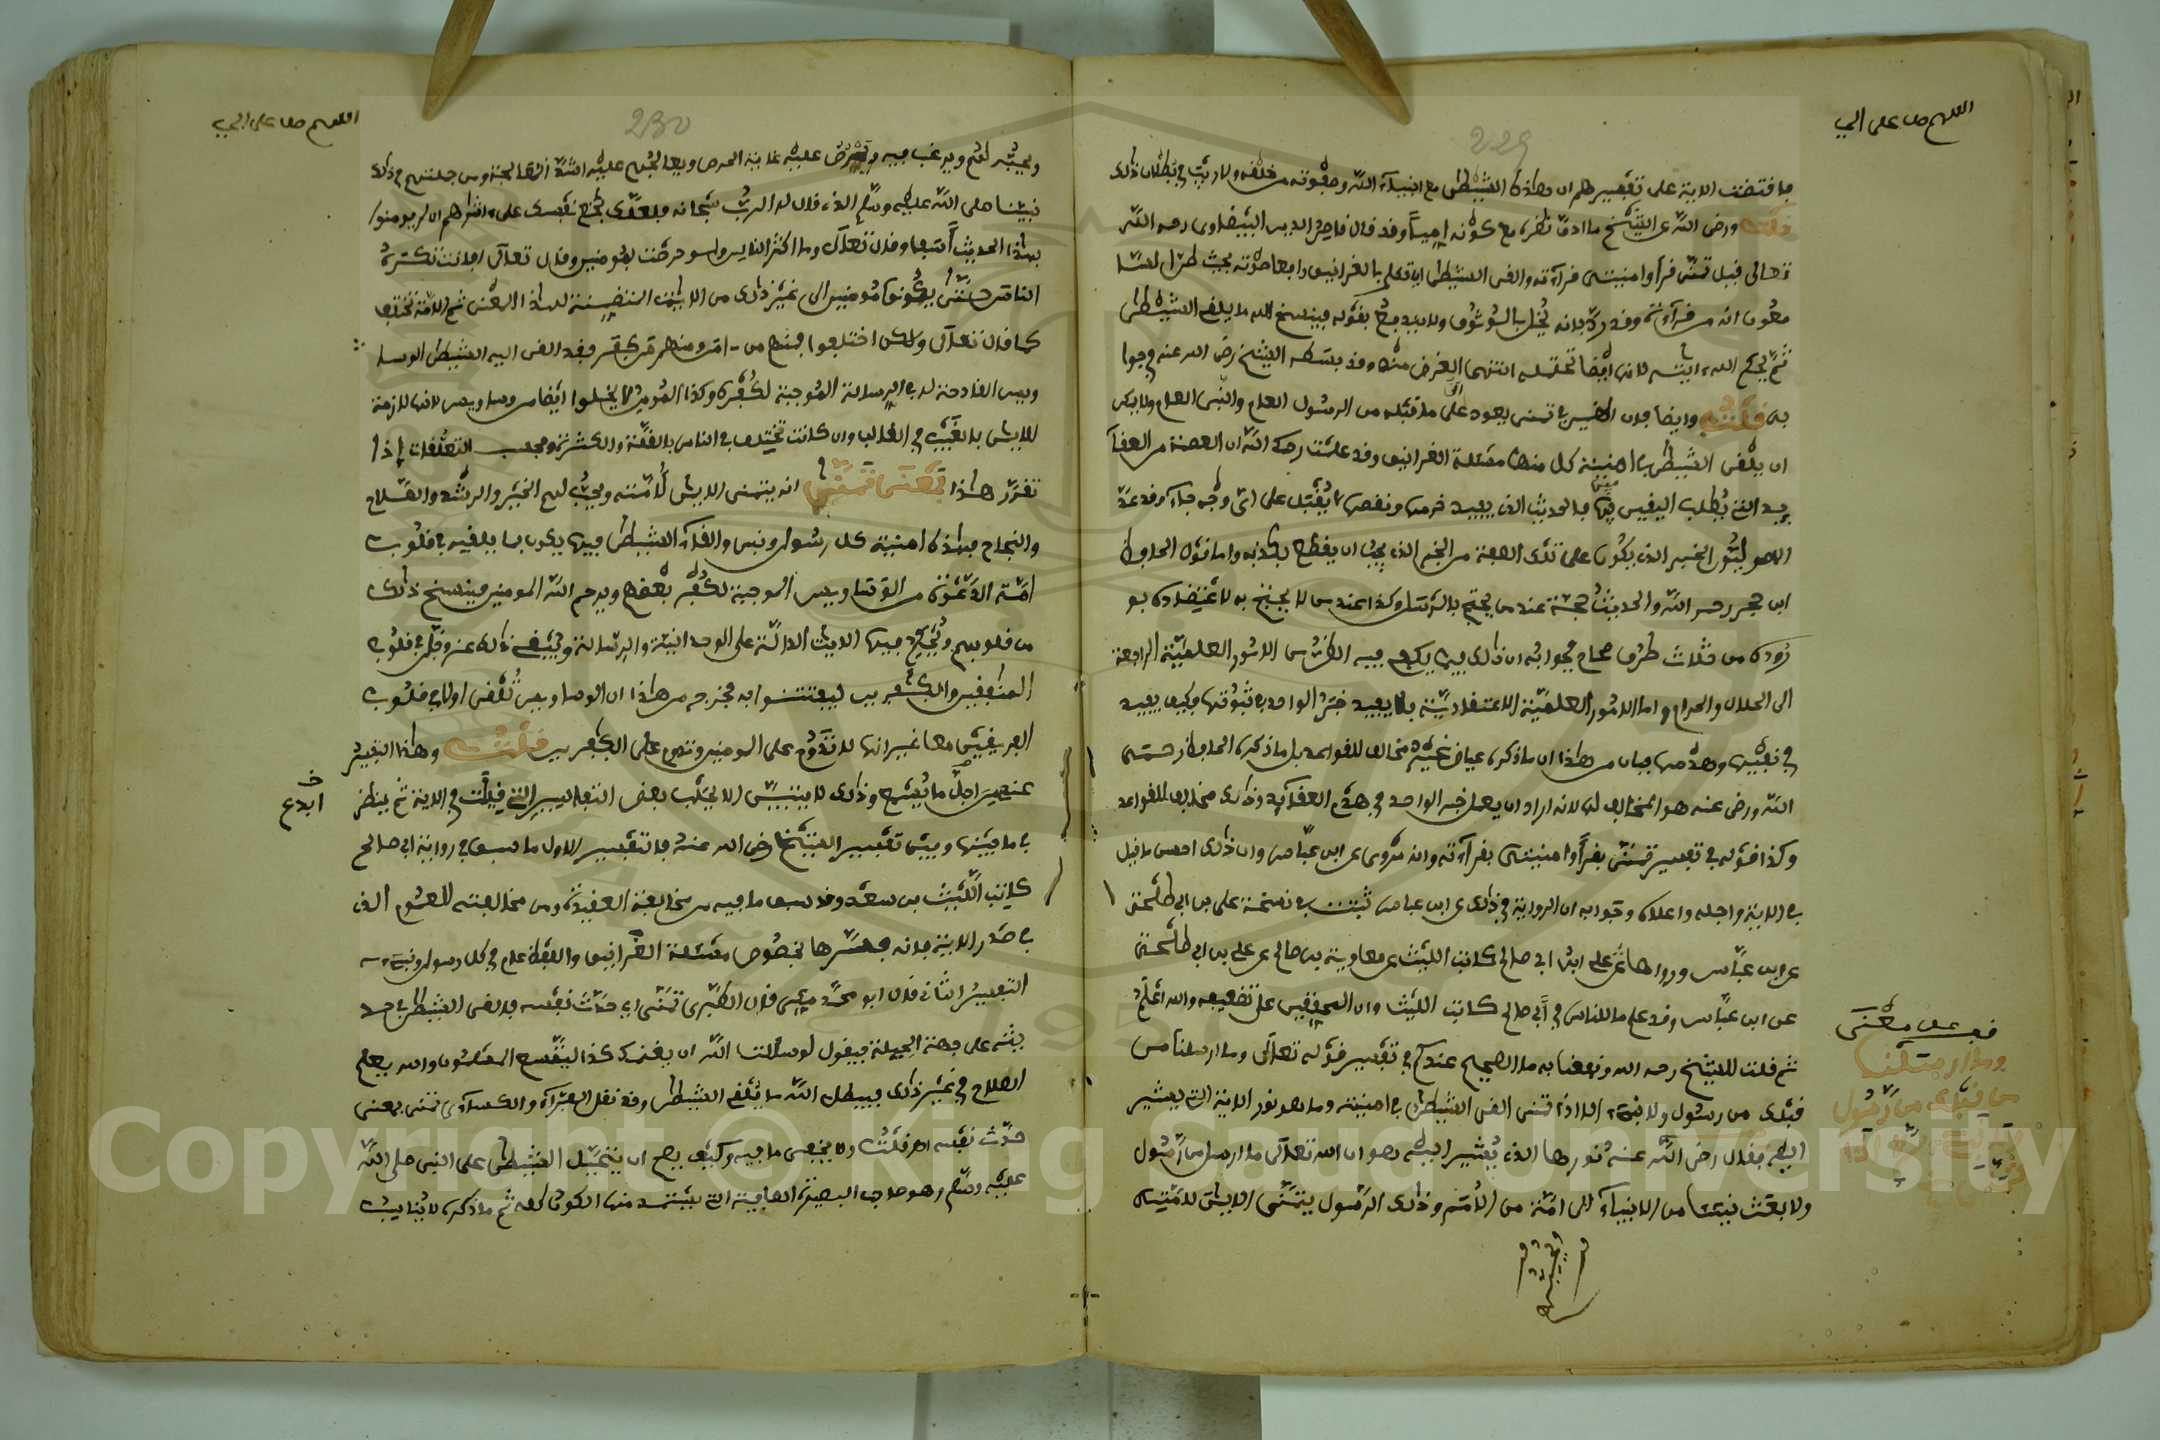 اللهم صل على النبي
229
فاقتضت الاية على تفسيرهم ان هاذه الشيطن مع انبياء الله وصفوته من خلقه ولا ريب في بطلان ذلك
قلت ورضي الله عن الشيخ ما ادق نظره مع كونه اميا وقد قال ناصر الدين البيضاوي رحمه الله
تعالى قيل تمنى قرأ وامنيته قراءته والقى الشيطن ان تكلم بالغرانيق رافعا صوته بحيث ظن السا
معون انه من قراءته وقد رد بانه يخل بالوثوق ولا يندفع بقوله فينسخ الله ما يلقي الشيطن
ثم يحكم الله ءايته لانها ايضا تحتمله انتهى الغرض منه وقد بسطه الشيخ رضي الله عنه وجوا
به قلت وايضا فان الضمير في تمنى يعود على ما قبله من الرسول العام والنبي العام ولا يمكن
ان يلقي الشيطن في امنية كل منهما مسئلة الغرانيق وقد علمت رحمك الله ان العصمة من العقا
يد التي يطلب فيها اليقين فالحديث الذي يفيد خرمها ونقضها لا يقبل على اي وجه جاء وقد عد
الاصوليون الخبر الذي يكون على تلك الصفة من الخبر الذي يجب ان يقطع بكذبه واما قول الحافظ
ابن حجر رحمه الله والحديث حجة عند من يحتج بالمرسل وكذا عند من لا يحتج به لاعتضاده بو
روده من ثلاث طرق صحاح فجوابه ان ذلك فيما يكفي فيه الظن من الامور العلمية الراجعة
الى الحلال والحرام واما الامور العلمية الاعتقادية فلا يفيد خبر الواحد في ثبوتها فكيف يفيد
في نفيها وهدمها فبان من هاذا ان ما ذكره عياض غير مخالف للقواعد بل ما ذكره الحافظ رحمه
الله ورضي عنه هو المخالف لها لانه اراد ان يعمل خبر الواحد في هدم العقائد وذلك مخالف للقواعد
وكذا قوله في تفسير تمنى بقرأ وامنيته بقراءته وانه مروي عن ابن عباس وان ذلك احسن ما قيل
في الاية واجله واعلاه وجوابه ان الرواية في ذلك عن ابن عباس ثبتت في نسخة علي بن ابي طلحة
عن ابن عباس ورواها عن علي ابن ابي صالح كاتب الليث عن معاوية بن صالح عن علي بن ابي طلحة
عن ابن عباس وقد علم ما للناس في ابي صالح كاتب الليث وان المحققين على تضعيفه والله اعلم
ثم قلت للشيخ رحمه الله ونفعنا به ما الصحيح عندكم في تفسير قوله تعالى وما ارسلنا من
قبلك من رسول ولا نبيء الا اذا تمنى القى الشيطن في امنيته وما هو نور الاية الذي يشير
اليه فقال رضي الله عنه نورها الذي يشير اليه هو ان الله تعالى ما ارسل من رسول
ولا بعث نبيئا من الانبياء الى امة من الامم وذلك الرسول يتمنى الايمان لامته
قف على معنى
وما ارسلنا
من قبلك من رسول
اللهم صل على النبي
230
ويحبه لهم ويرغب فيه ويحرص عليه غاية الحرص ويعالجهم عليه اشد المعالجة ومن جملتهم في ذلك
نبينا صلى الله عليه وسلم الذي قال له الرب سبحانه فلعلك باخع نفسك على ءاثارهم ان لم يومنوا
بهذا الحديث أسفا وقال تعالى وما اكثر الناس ولو حرصت بمومنين وقال تعالى افانت تكره
الناس حتى يكونوا مومنين الى غير ذلك من الايات المتضمنة لهذا المعنى ثم الامة تختلف
كما قال تعالى ولكن اختلفوا فمنهم من ءامن ومنهم من كفر فاما من كفر فقد القى اليه الشيطن الوسا
وس القادحة له في الرسالة الموجبة لكفره وكذا المومن لا يخلوا ايضا من وساويس لانها لازمة
للايمان بالغيب في الغالب وان كانت تختلف في الناس بالقلة والكثرة وبحسب المتعلقات إذا
تقرر هاذا فمعنى تمنى انه يتمنى الايمان لأمته ويحب لهم الخير والرشد والصلاح
والنجاح فهذه امنية كل رسول ونبي والقاء الشيطن فيها يكون بما يلقيه في قلوب
امة الدعوة من الوساويس الموجبة لكفر بعضهم ويرحم الله المومنين فينسخ ذلك
من قلوبهم ويحكم فيها الايات الدالة على الوحدانية والرسالة ويبقي ذلك عز وجل في قلوب
المنافقين والكافرين ليفتتنوا به فخرج من هاذا ان الوساويس تلقى اولا في قلوب
الفريقين معا غير انها لا تدوم على المومنين وتدوم على الكافرين قلت وهاذا التفسير
عندي من اجل ما يسمع وذلك لا يتبين الا بجلب بعض التفاسير التي قيلت في الاية ثم ينظر
خ
ابدع
في ما بينها وبين تفسير الشيخ رضي الله عنه فالتفسير الاول ما سبق في رواية ابي صالح
كاتب الليث بن سعد وقد سبق ما فيه من مخالفة العقيدة ومن مخالفته للعموم الذي
في صدر الاية فانه فسرها بخصوص مسئلة الغرانيق واللفظ عام في كل رسول ونبيء
التفسير الثاني قال ابو محمد مكي قال الطبري تمنى اي حدث نفسه فالقى الشيطن في حد
يثه على جهة الحيلة فيقول لو سألت الله ان يغنمك كذا ليتسع المسلمون والله يعلم
الصلاح في غير ذلك فيبطل الله ما يلقي الشيطن وقد نقل الفراء والكساءي تمنى بمعنى
حدث نفسه اهـ قلت ولا يخفى ما فيه وكيف يصح ان يتحيل الشيطن على النبي صلى الله
عليه وسلم وهو صاحب البصيرة الصافية التي يستمد منها الكون كله ثم ما ذكره لا يناسب